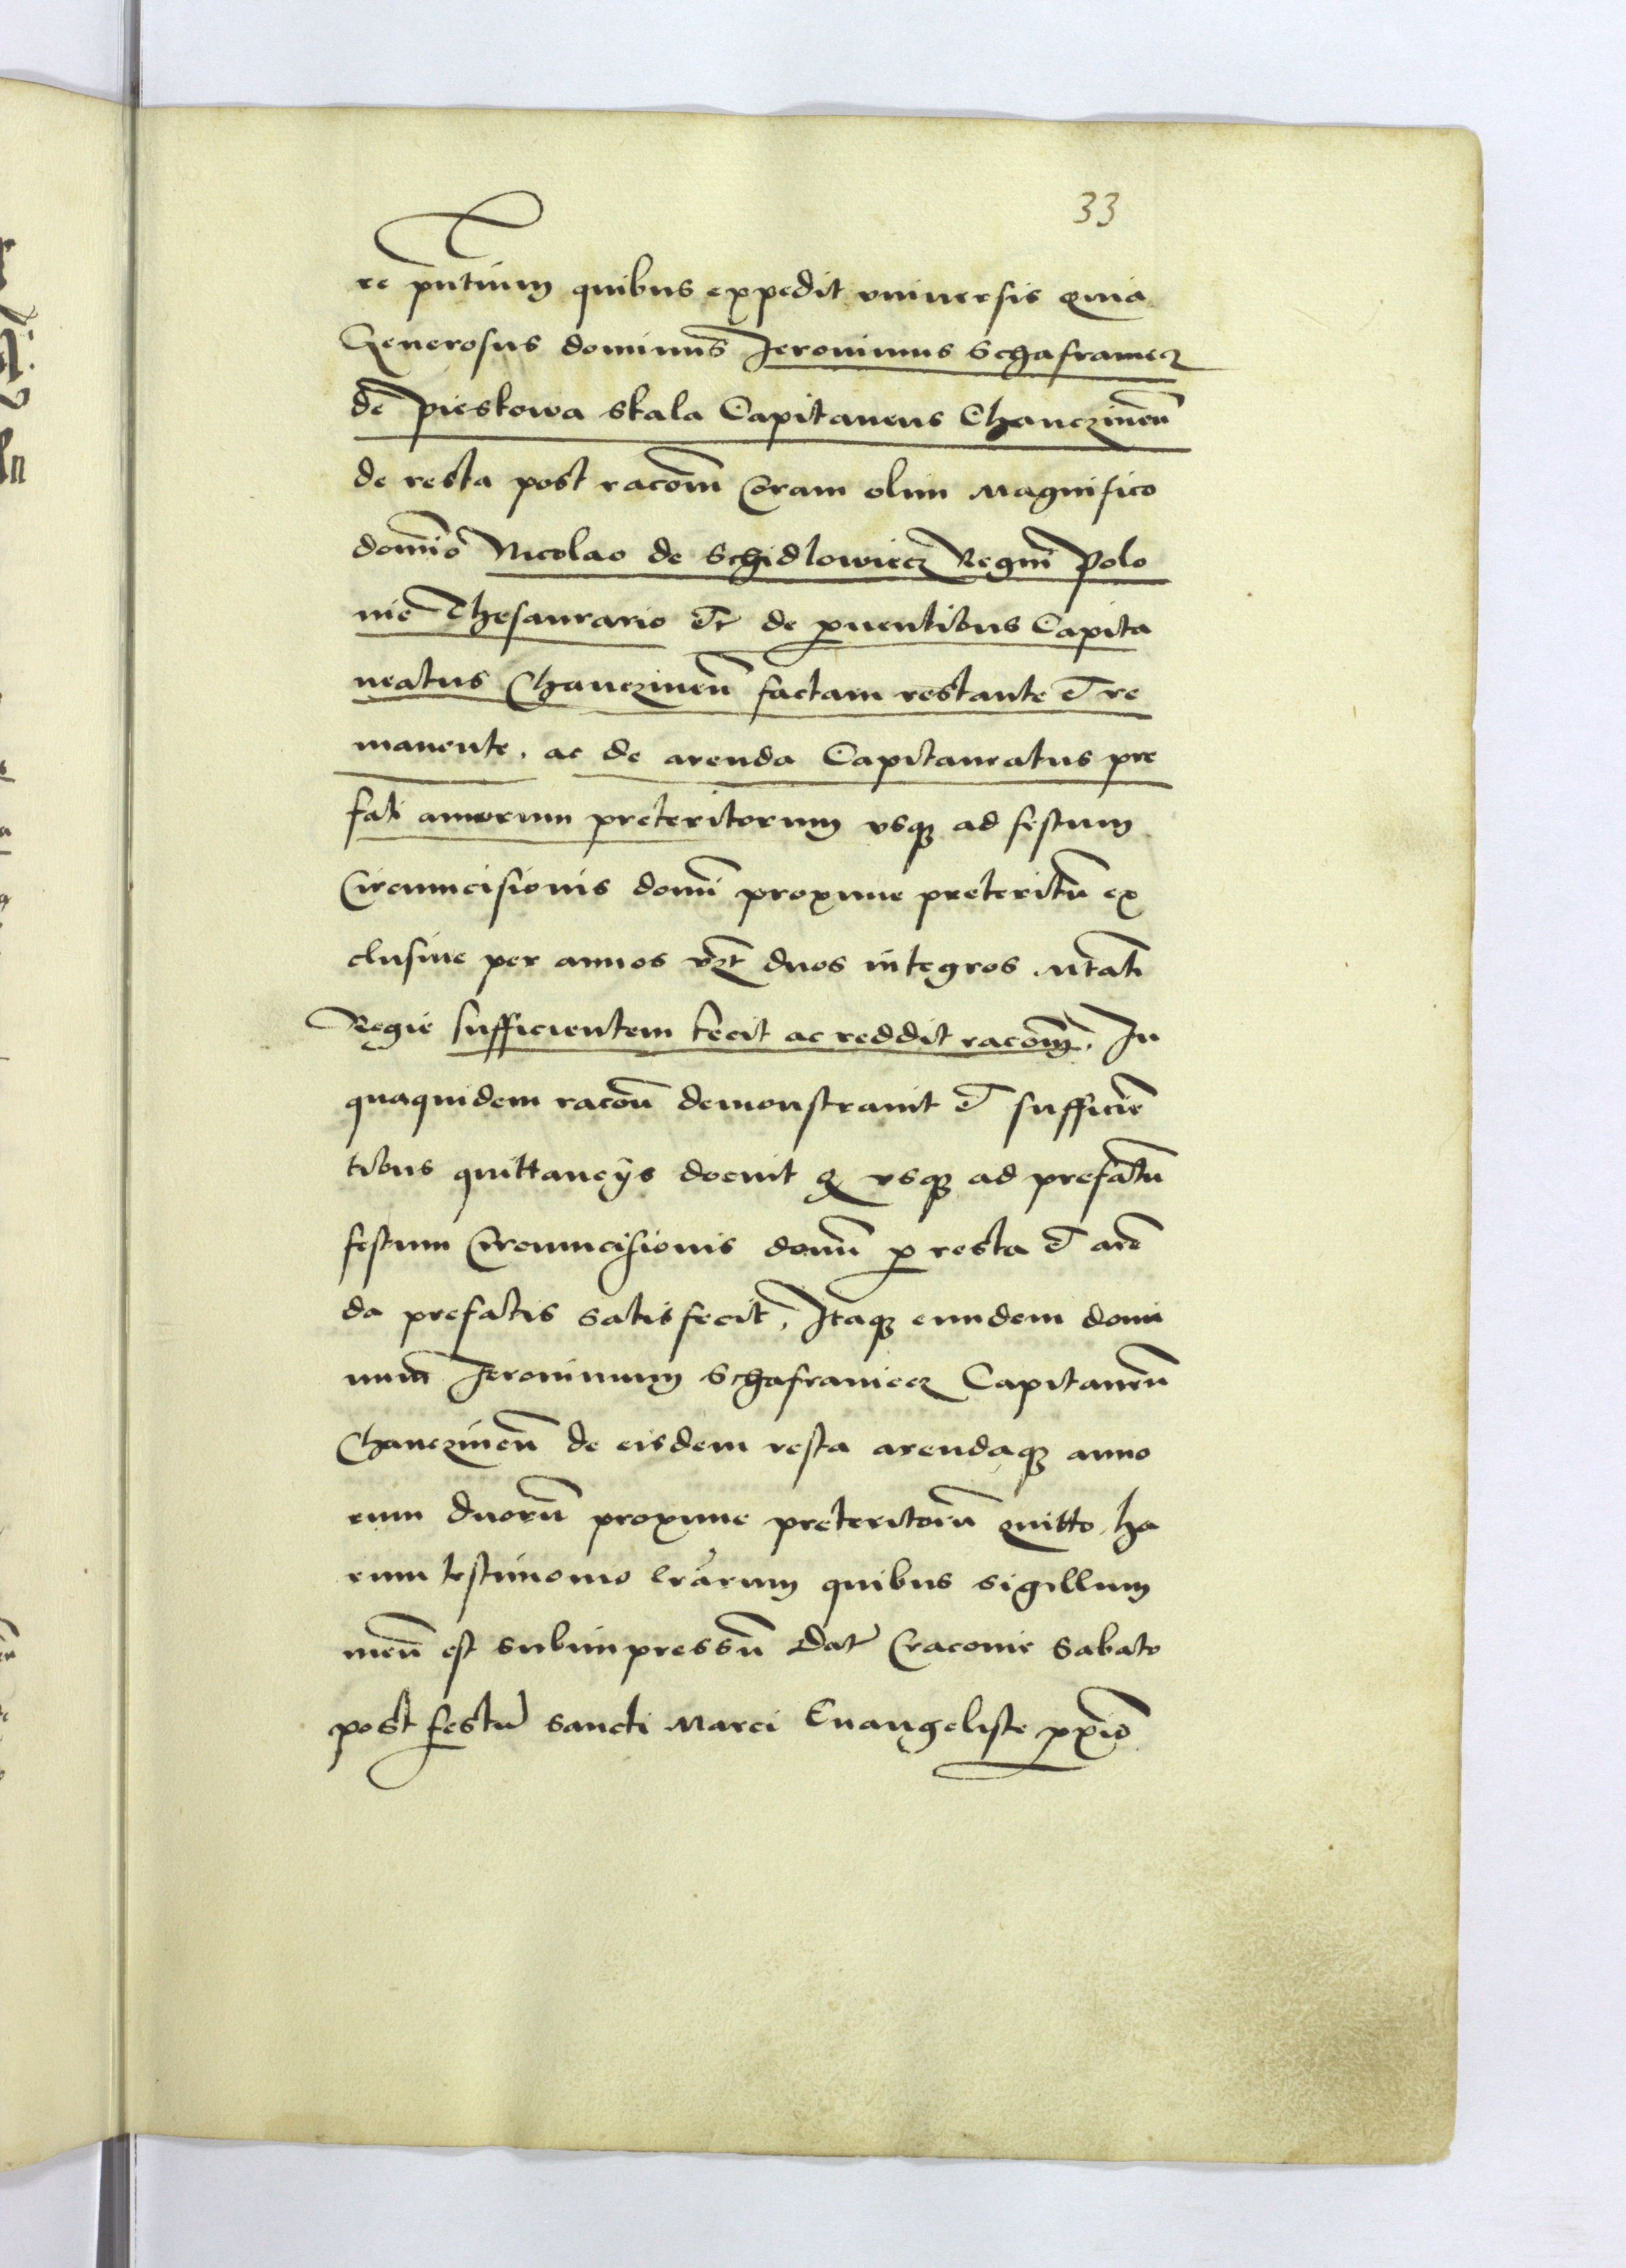 33
re pntium quibus expedit vniuersis quia
Generosus dominus Jeronimus Schafraniecz
de Pieskowa skala Capitaneus Chanczinen
de resta post racom coram olim Magnifico
domino Nicolao de Schidlowiecz Regni Polo
nie Thesaurario etc de prouentibus Capita
neatus Chanczinen factam restante et re
manente. ac de arenda Capitaneatus pre
fati annorum preteritorum vsq ad festum
Circumcisionis domini proxime preteritu ex
clusiue per annos vzt duos integros Mtati
Regie sufficientem fecit ac reddit racom. In
quaquidem racon demonstrauit et sufficien
tibus quittancijs docuit q vsq ad prefatu
festum Circumcisionis domi p resta et aren
da prefatis satisfecit. Itaq eundem domi
num Jeronimum Schafraniecz Capitaneu
Chanczinen de eisdem resta arendaq anno
rum duoru proxime preteritoru quitto ha
rum testimonio lrarum quibus sigillum
meu est subimpressu Dat Cracouie Sabato
post festu sancti Marci Euangeliste pximo